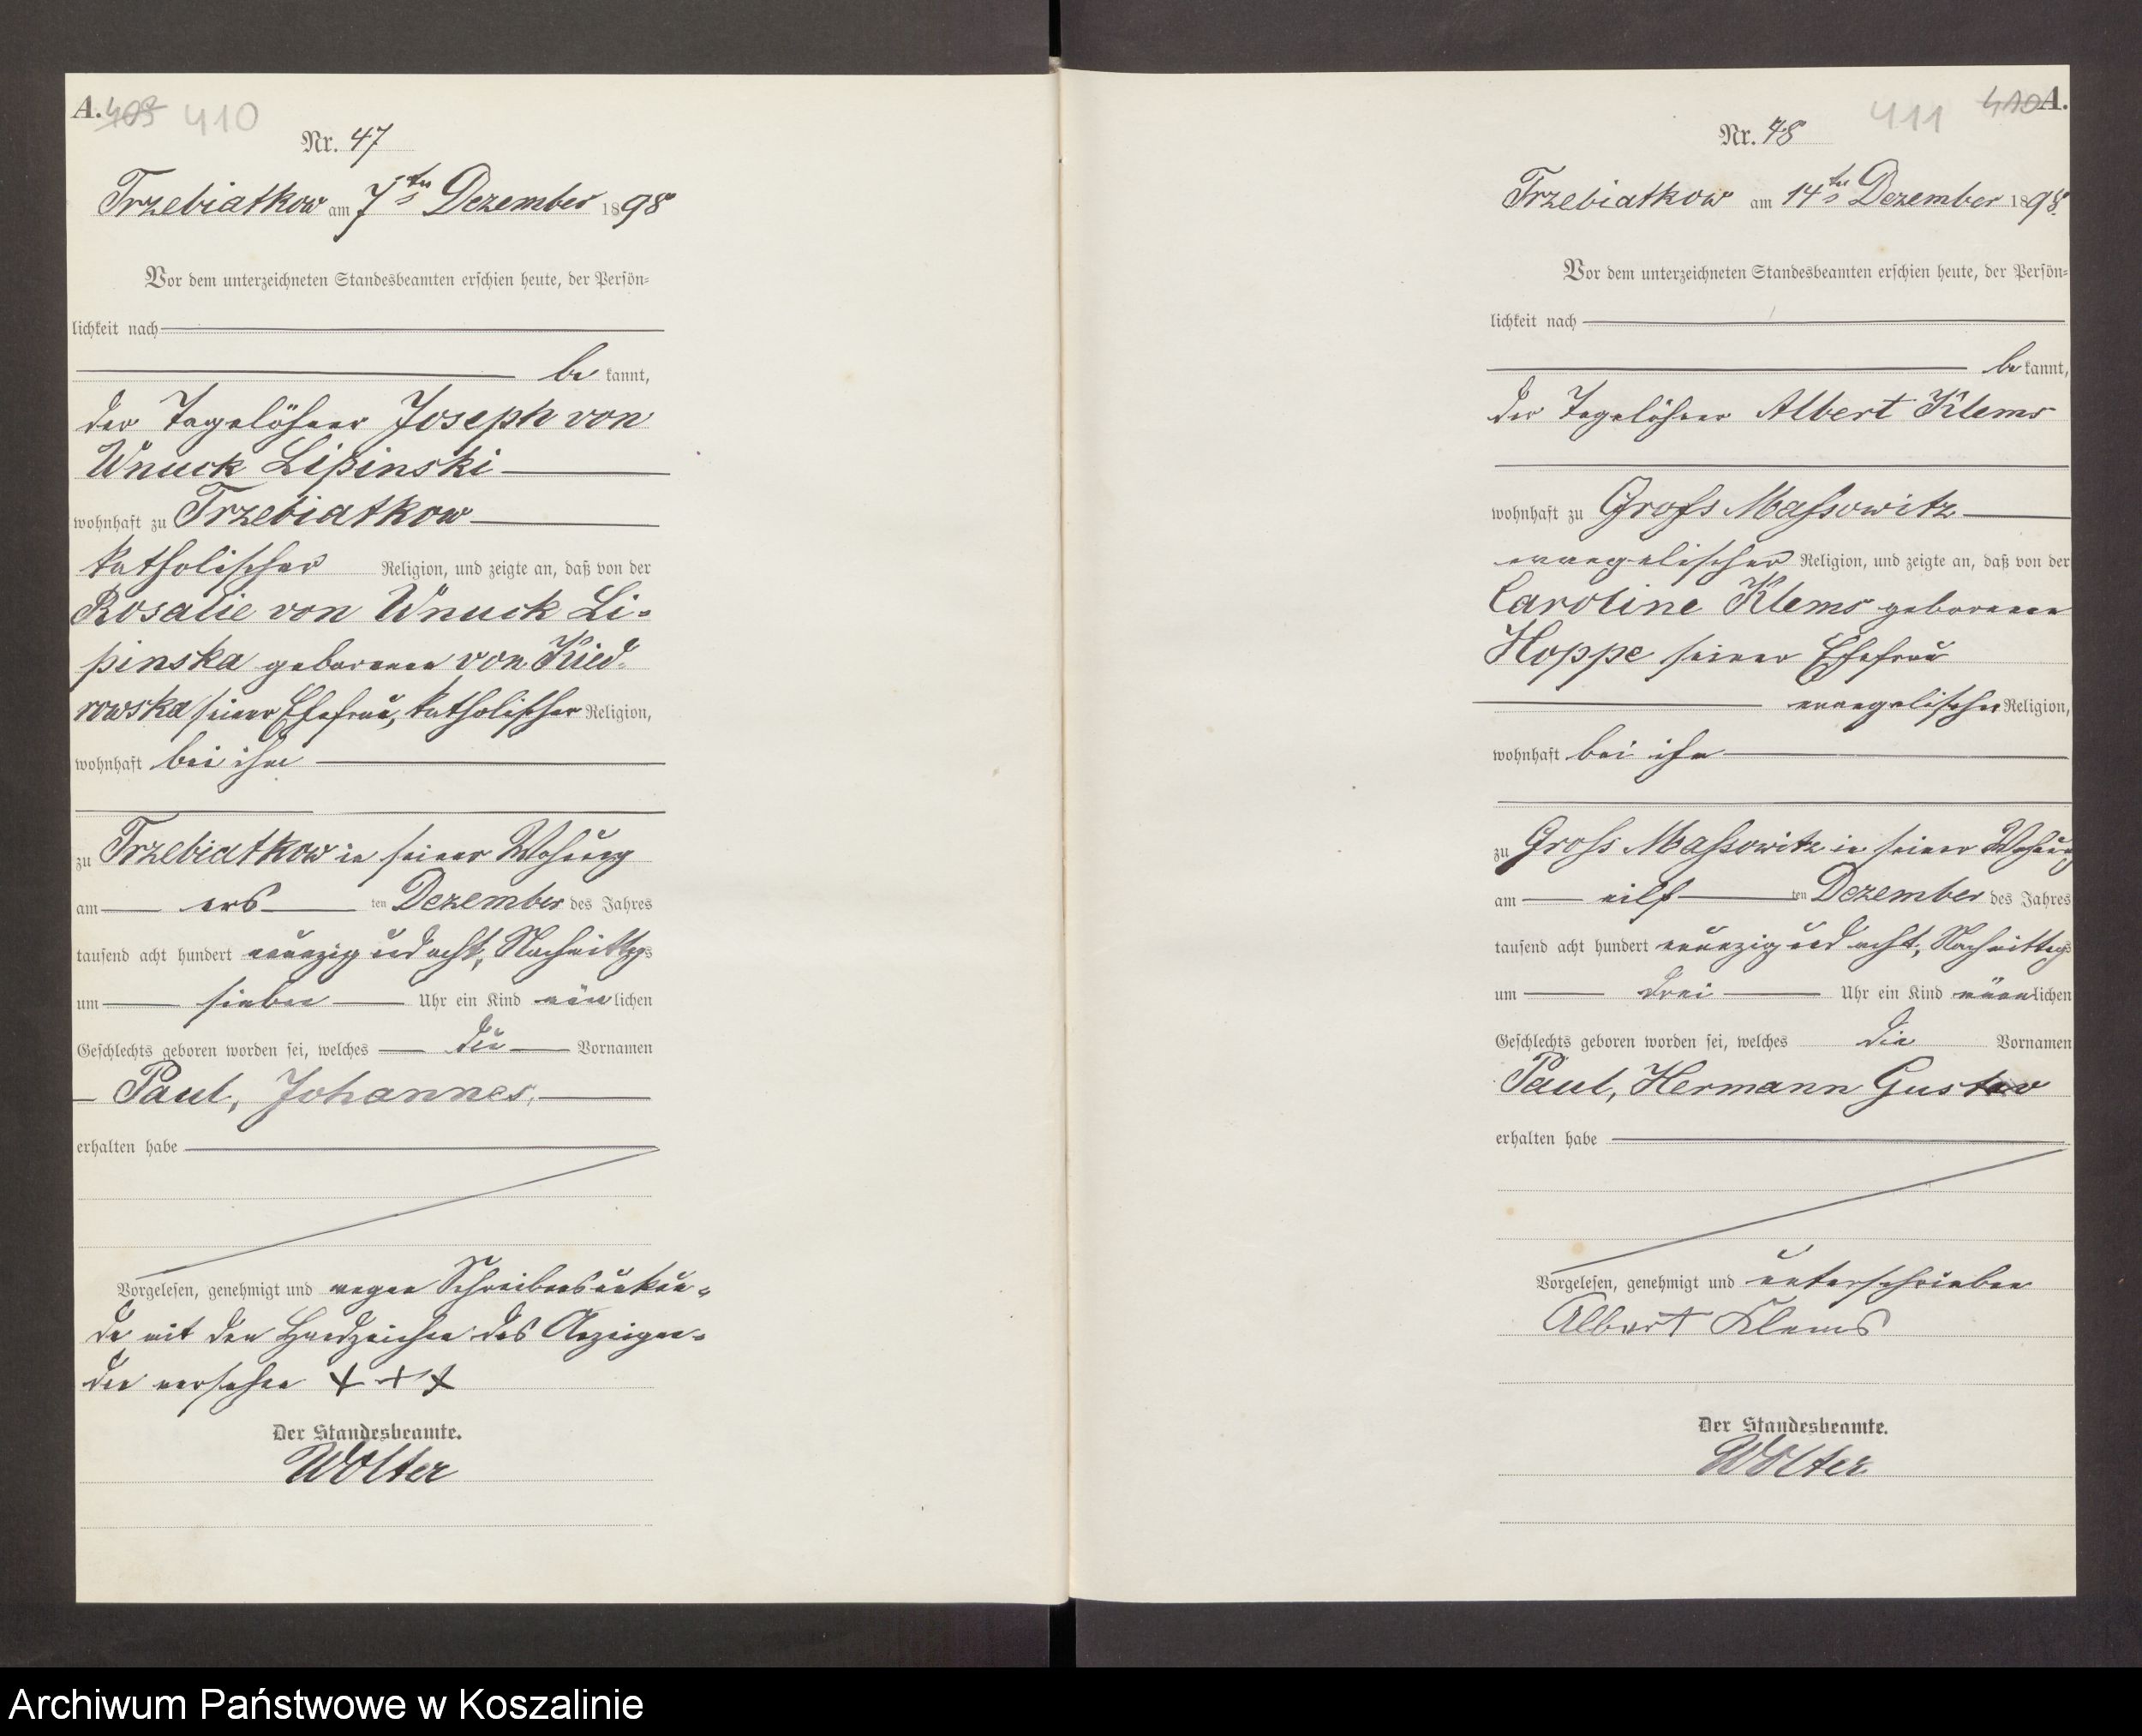 A. 409 410
Nr. 47
Trzebiatkow am 7ten Dezember 1898
Vor dem unterzeichneten Standesbeamten erschien heute, der Persön-
lichkeit nach
be kannt,
der Tagelöhner Joseph von
Wnuck Lipinski
wohnhaft zu Trzebiatkow
katholischer Religion, und zeigte an, daß von der
Rosalie von Wnuck Li-
pinska geborenen von Kied-
rowska seiner Ehefrau, katholischer Religion,
wohnhaft bei ihm
zu Trzebiatkow in seiner Wohnung
am ers ten Dezember des Jahres
tausend acht hundert neunzig und acht, Nachmittags
um sieben Uhr ein Kind männlichen
Geschlechts geboren worden sei, welches die Vornamen
Paul, Johannes,
erhalten habe
Vorgelesen, genehmigt und wegen Schreibensunkun-
de mit den Handzeichen des Anzeigen-
den versehen + + +
Der Standesbeamte.
Wolter
411 410 A.
Nr. 48
Trzebiatkow am 14ten Dezember 1898
Vor dem unterzeichneten Standesbeamten erschien heute, der Persön-
lichkeit nach
be kannt,
der Tagelöhner Albert Klems
wohnhaft zu Gross Massowitz
evangelischer Religion, und zeigte an, daß von der
Caroline Klems geborenen
Hoppe seiner Ehefrau
evangelischer Religion,
wohnhaft bei ihm
zu Gross Massowitz in seiner Wohnung
am eilf ten Dezember des Jahres
tausend acht hundert neunzig und acht, Nachmittags
um drei Uhr ein Kind männlichen
Geschlechts geboren worden sei, welches die Vornamen
Paul, Hermann Gustav
erhalten habe
Vorgelesen, genehmigt und unterschrieben
Albert Klems
Der Standesbeamte.
Wolter
Archiwum Państwowe w Koszalinie